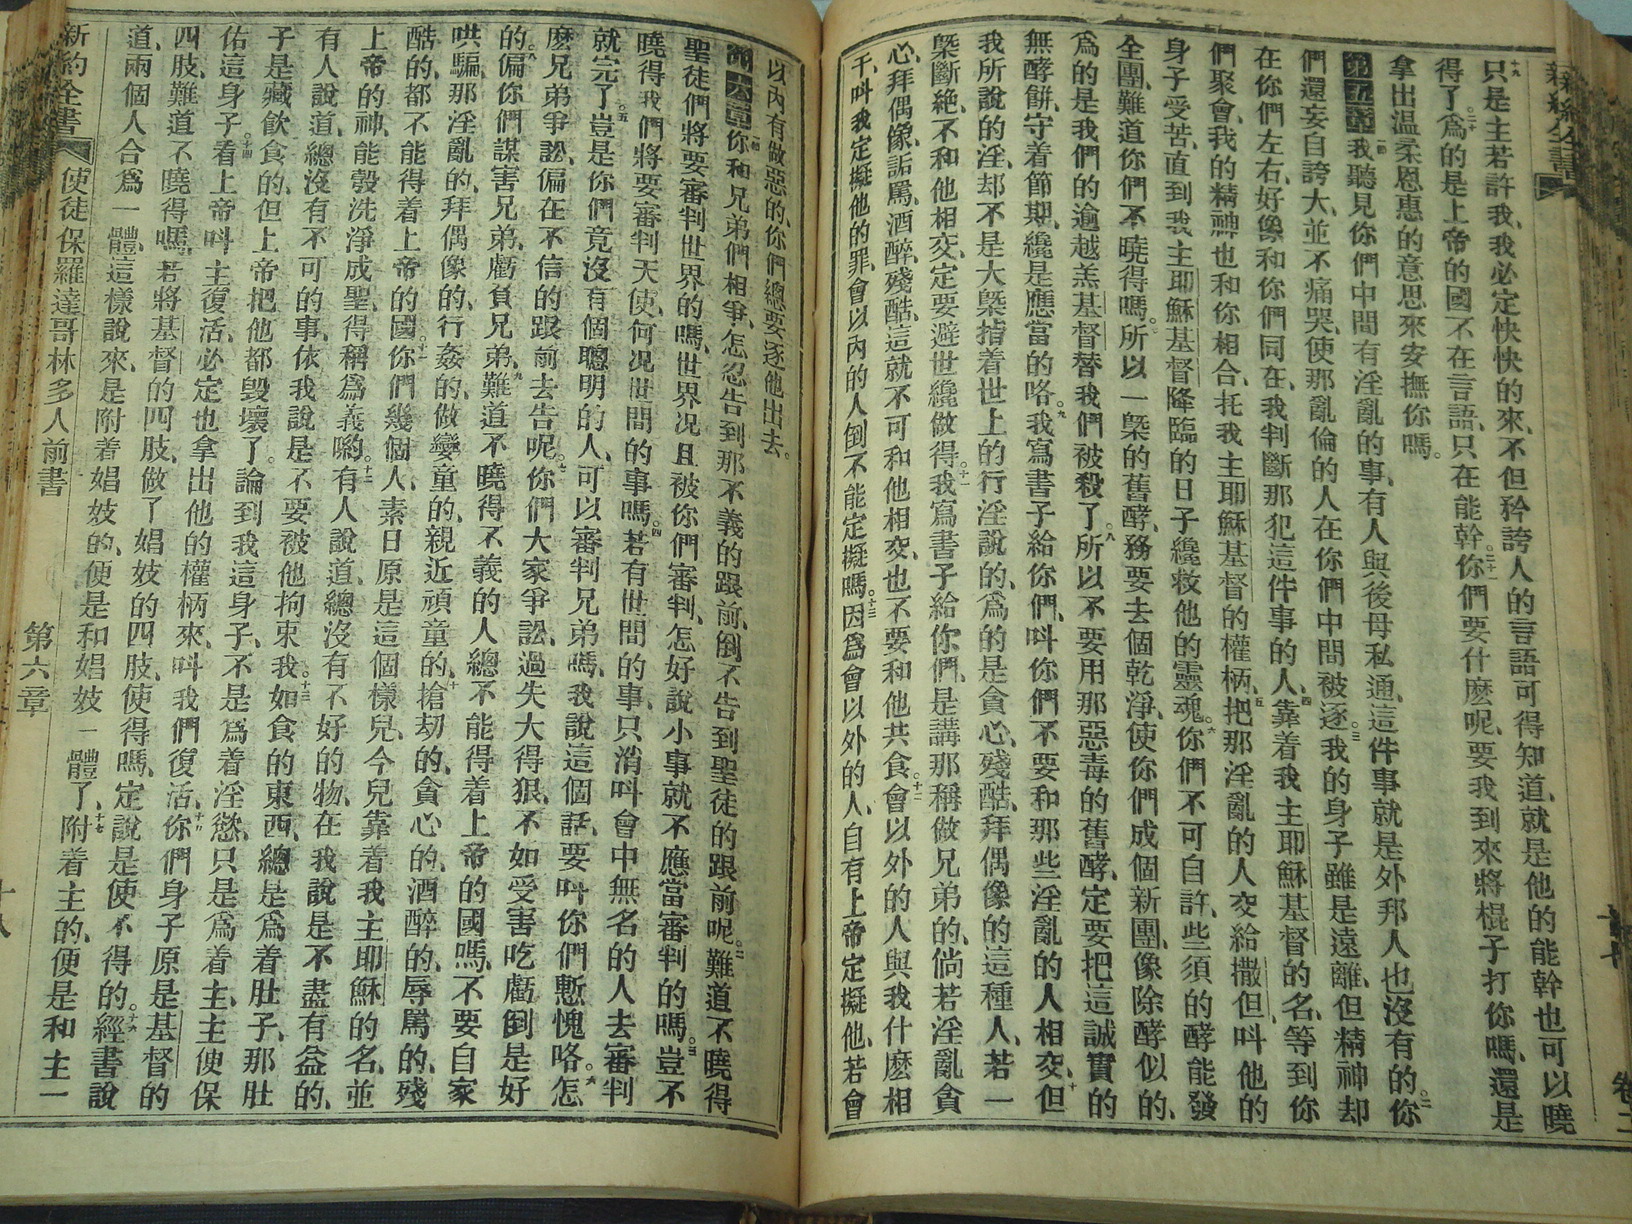 新約全書
卷二
十九只是主若許我、我必定快快的來、不但矜誇人的言語可得知道、就是他的能幹也可以曉
得了。二十爲的是上帝的國不在言語、只在能幹。二十一你們要什麽呢、要我到來將棍子打你嗎、還是
拿出溫柔恩惠的意思來安撫你嗎。
第五章 一節我聽見你們中間有淫亂的事、有人與後母私通、這件事就是外邦人也沒有的。二你
們還妄自誇大、並不痛哭、使那亂倫的人在你們中間被逐。三我的身子雖是遠離、但精神却
在你們左右、好像和你們同在、我判斷那犯這件事的人、四靠着我主耶穌基督的名、等到你
們聚會、我的精神也和你相合、托我主耶穌基督的權柄、五把那淫亂的人交給撒但、呌他的
身子受苦、直到我主耶穌基督降臨的日子纔救他的靈魂。六你們不可自許、些須的酵能發
全團、難道你們不曉得嗎。所以一槩的舊酵、務要去個乾淨、使你們成個新團、像除酵似的、
爲的是我們的逾越羔基督替我們被殺了。八所以不要用那惡毒的舊酵、定要把這誠實的
無酵餅、守着節期、纔是應當的咯。九我寫書子給你們、呌你們不要和那些淫亂的人相交、十但
我所說的淫、却不是大槩指着世上的行淫說的、爲的是貪心、殘酷、拜偶像的這種人、若一
槩斷絕、不和他相交、定要避世纔做得。十一我寫書子給你們、是講那稱做兄弟的、倘若淫亂貪
心、拜偶像、詬罵、酒醉、殘酷、這就不可和他相交、也不要和他共食。十二會以外的人與我什麽相
干、呌我定擬他的罪、會以內的人倒不能定擬嗎。十三因爲會以外的人、自有上帝定擬他、若會
以內有做惡的、你們總要逐他出去。
第六章 一節你和兄弟們相爭、怎忍告到那不義的跟前、倒不告到聖徒的跟前呢。二難道不曉得
聖徒們將要審判世界的嗎、世界况且被你們審判、怎好說小事就不應當審判的嗎。三豈不
曉得我們將要審判天使、何况世間的事嗎。四若有世間的事、只消呌會中無名的人去審判
就完了。五豈是你們竟沒有個聰明的人、可以審判兄弟嗎、我說這個話、要呌你們慙愧咯。六怎
麽兄弟爭訟、偏在不信的跟前去告呢。七你們大家爭訟、過失大得狠、不如受害吃虧倒是好
的。八偏你們謀害兄弟、虧負兄弟、九難道不曉得不義的人、總不能得着上帝的國嗎、不要自家
哄騙、那淫亂的、拜偶像的、行姦的、做孌童的、親近頑童的、十搶刼的、貪心的、酒醉的、辱罵的、殘
酷的、都不能得着上帝的國。十一你們幾個人、素日原是這個樣兒、今兒靠着我主耶穌的名、並
上帝的神、能彀洗淨成聖、得稱爲義喲。十二有人說道、總沒有不好的物、在我說是不盡有益的、
有人說道、總沒有不可的事、依我說是不要被他拘束我。十三如食的東西、總是爲着肚子、那肚
子是藏飲食的、但上帝把他都毁壞了。論到我這身子、不是爲着淫慾、只是爲着主、主便保
佑這身子。十四看上帝呌主復活、必定也拿出他的權柄來、呌我們復活、十五你們身子原是基督的
四肢、難道不曉得嗎、若將基督的四肢、做了娼妓的四肢、使得嗎、定說是使不得的。十六經書說
道、兩個人合爲一體、這樣說來、是附着娼妓的、便是和娼妓一體了、十七附着主的、便是和主一
新約全書 使徒保羅達哥林多人前書 第六章 十八